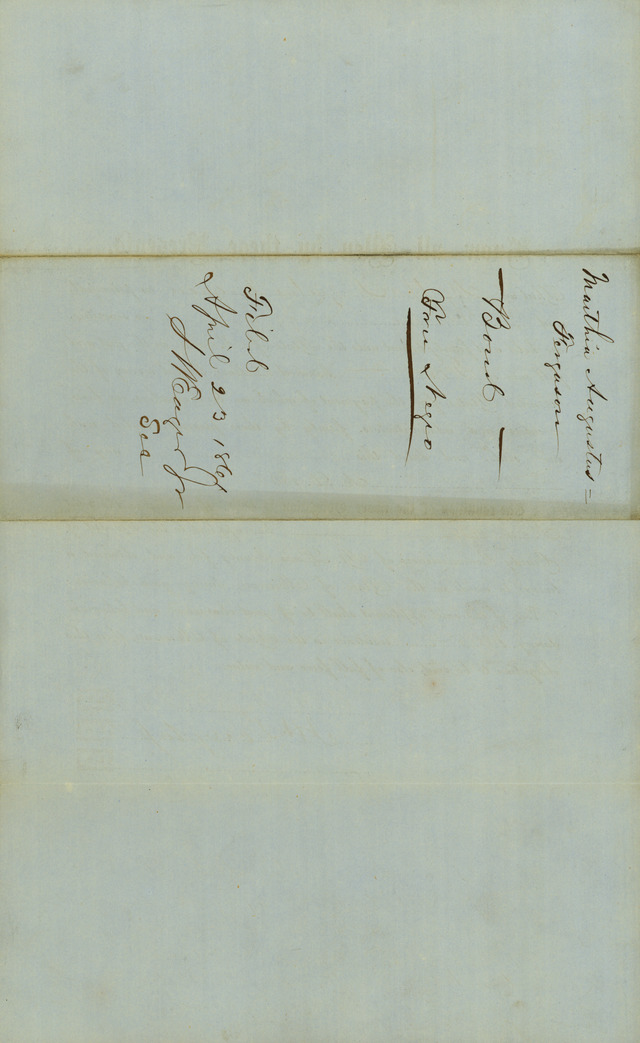 Martha Augustus =
Ferguson
— Bond —
Free Negro
Filed
April 23 1861
Eager Jr